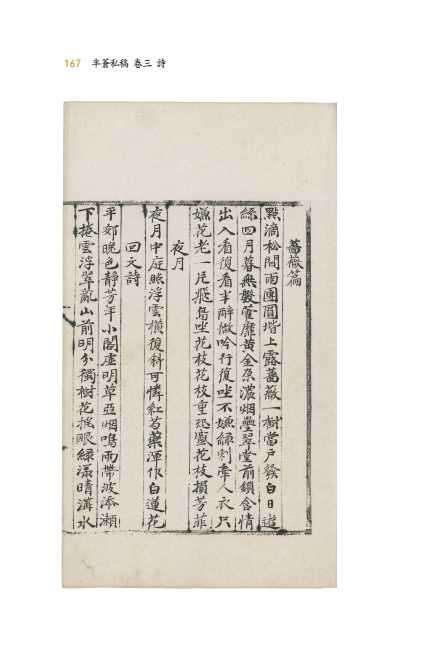 167 半蒼私稿 卷三 詩
薔薇篇
點滴松間雨團圓堦上露薔薇一樹當戶發白日遊
絲四月暮無數萱靡黃金朶濃烟疊翠堂前鎖含情
出入看復看半醉微吟行復坐不嫌綠刺牽人衣只
嫌花老一片飛鳥坐花枝花枝重恐盛花枝損芳菲
夜月
夜月中庭照浮雲橫復斜可憐紅芍藥渾作白蓮花
回文詩
平郊晚色靜芳年小閣虛明草亞烟鳴雨帶波添瀨
下捲雲浮翠亂山前明分獨樹花搖眼綠漾晴溝水